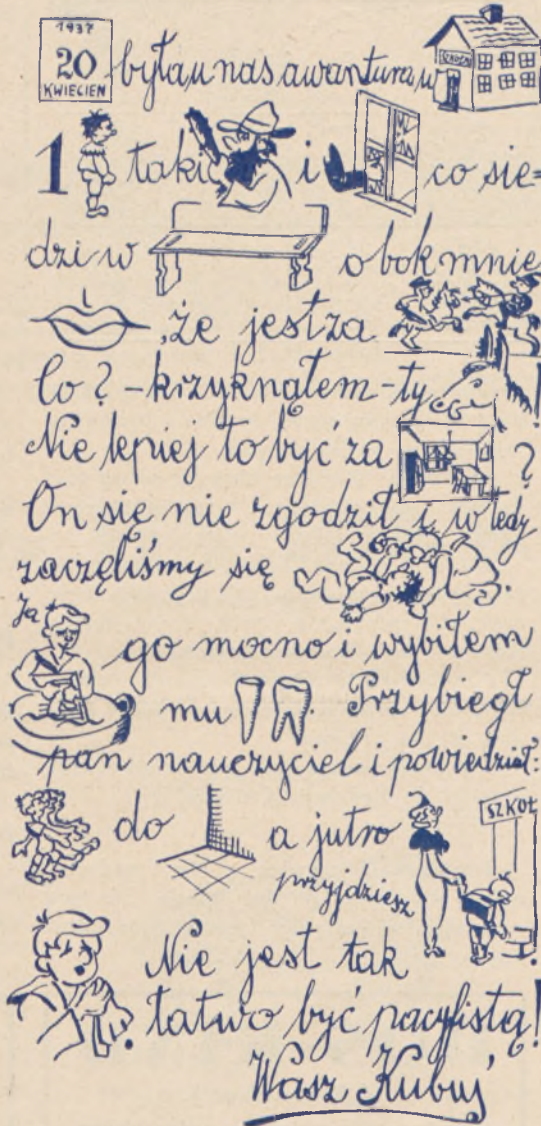 1937
20
KWIECIEN
była u nas awantura w
SZKOŁA
1 taki i co sie=
dzi w obok mnie
, że jest za
Co? - krzyknąłem - ty !
Nie lepiej to być za ?
On się nie zgodził i wtedy
zaczęliśmy się .
Ja
go mocno i wybiłem
mu . Przybiegł
pan nauczyciel i powiedział:
do a jutro
SZKOŁ
przyjdziesz
Nie jest tak
łatwo być pacyfistą!
Wasz Kubuś